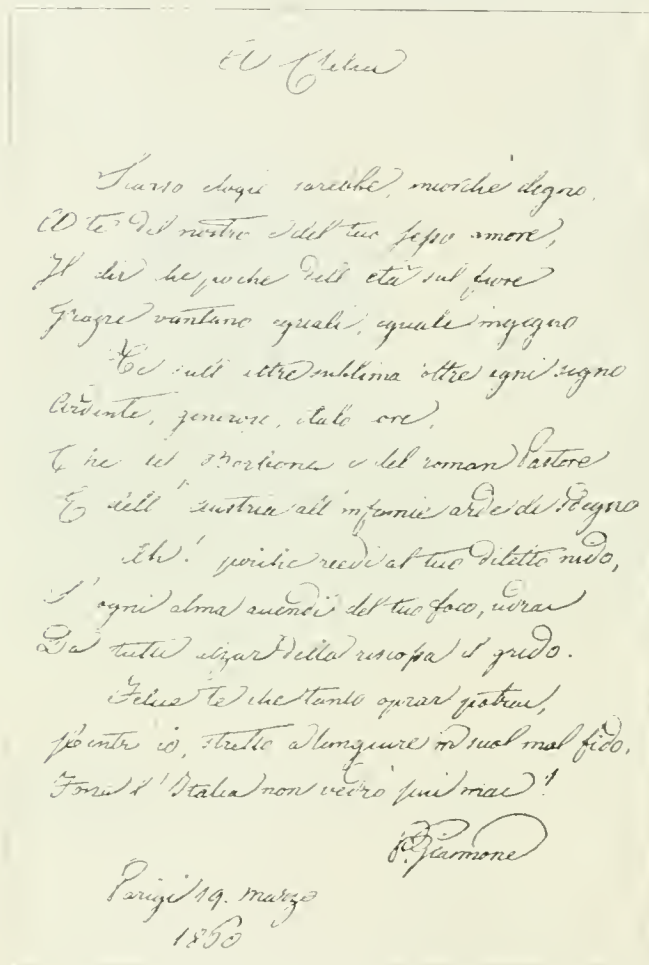 A Clelia
Scarso elogio sarebbe, anziché degno
A te del nostro e del tuo sesso amore,
Il dir che poche dell' età sul fiore
Grazie vantano uguali, uguale ingegno
Te sull' altre sublima oltre ogni segno
Ardente, generoso, italo core,
Che del Borbone e del roman Pastore
E dell' Austria all' infamie arde di sdegno
Ah! poiché riedi al tuo diletto nido,
S' ogni alma accendi del tuo foco, udrai
Da tutti alzar della riscossa il grido.
Felice te che tanto oprar potrai,
Mentr' io, stretto a languire in suol mal fido,
Forse l' Italia non vedrò più mai!
P. Giannone
Parigi 19. marzo
1850